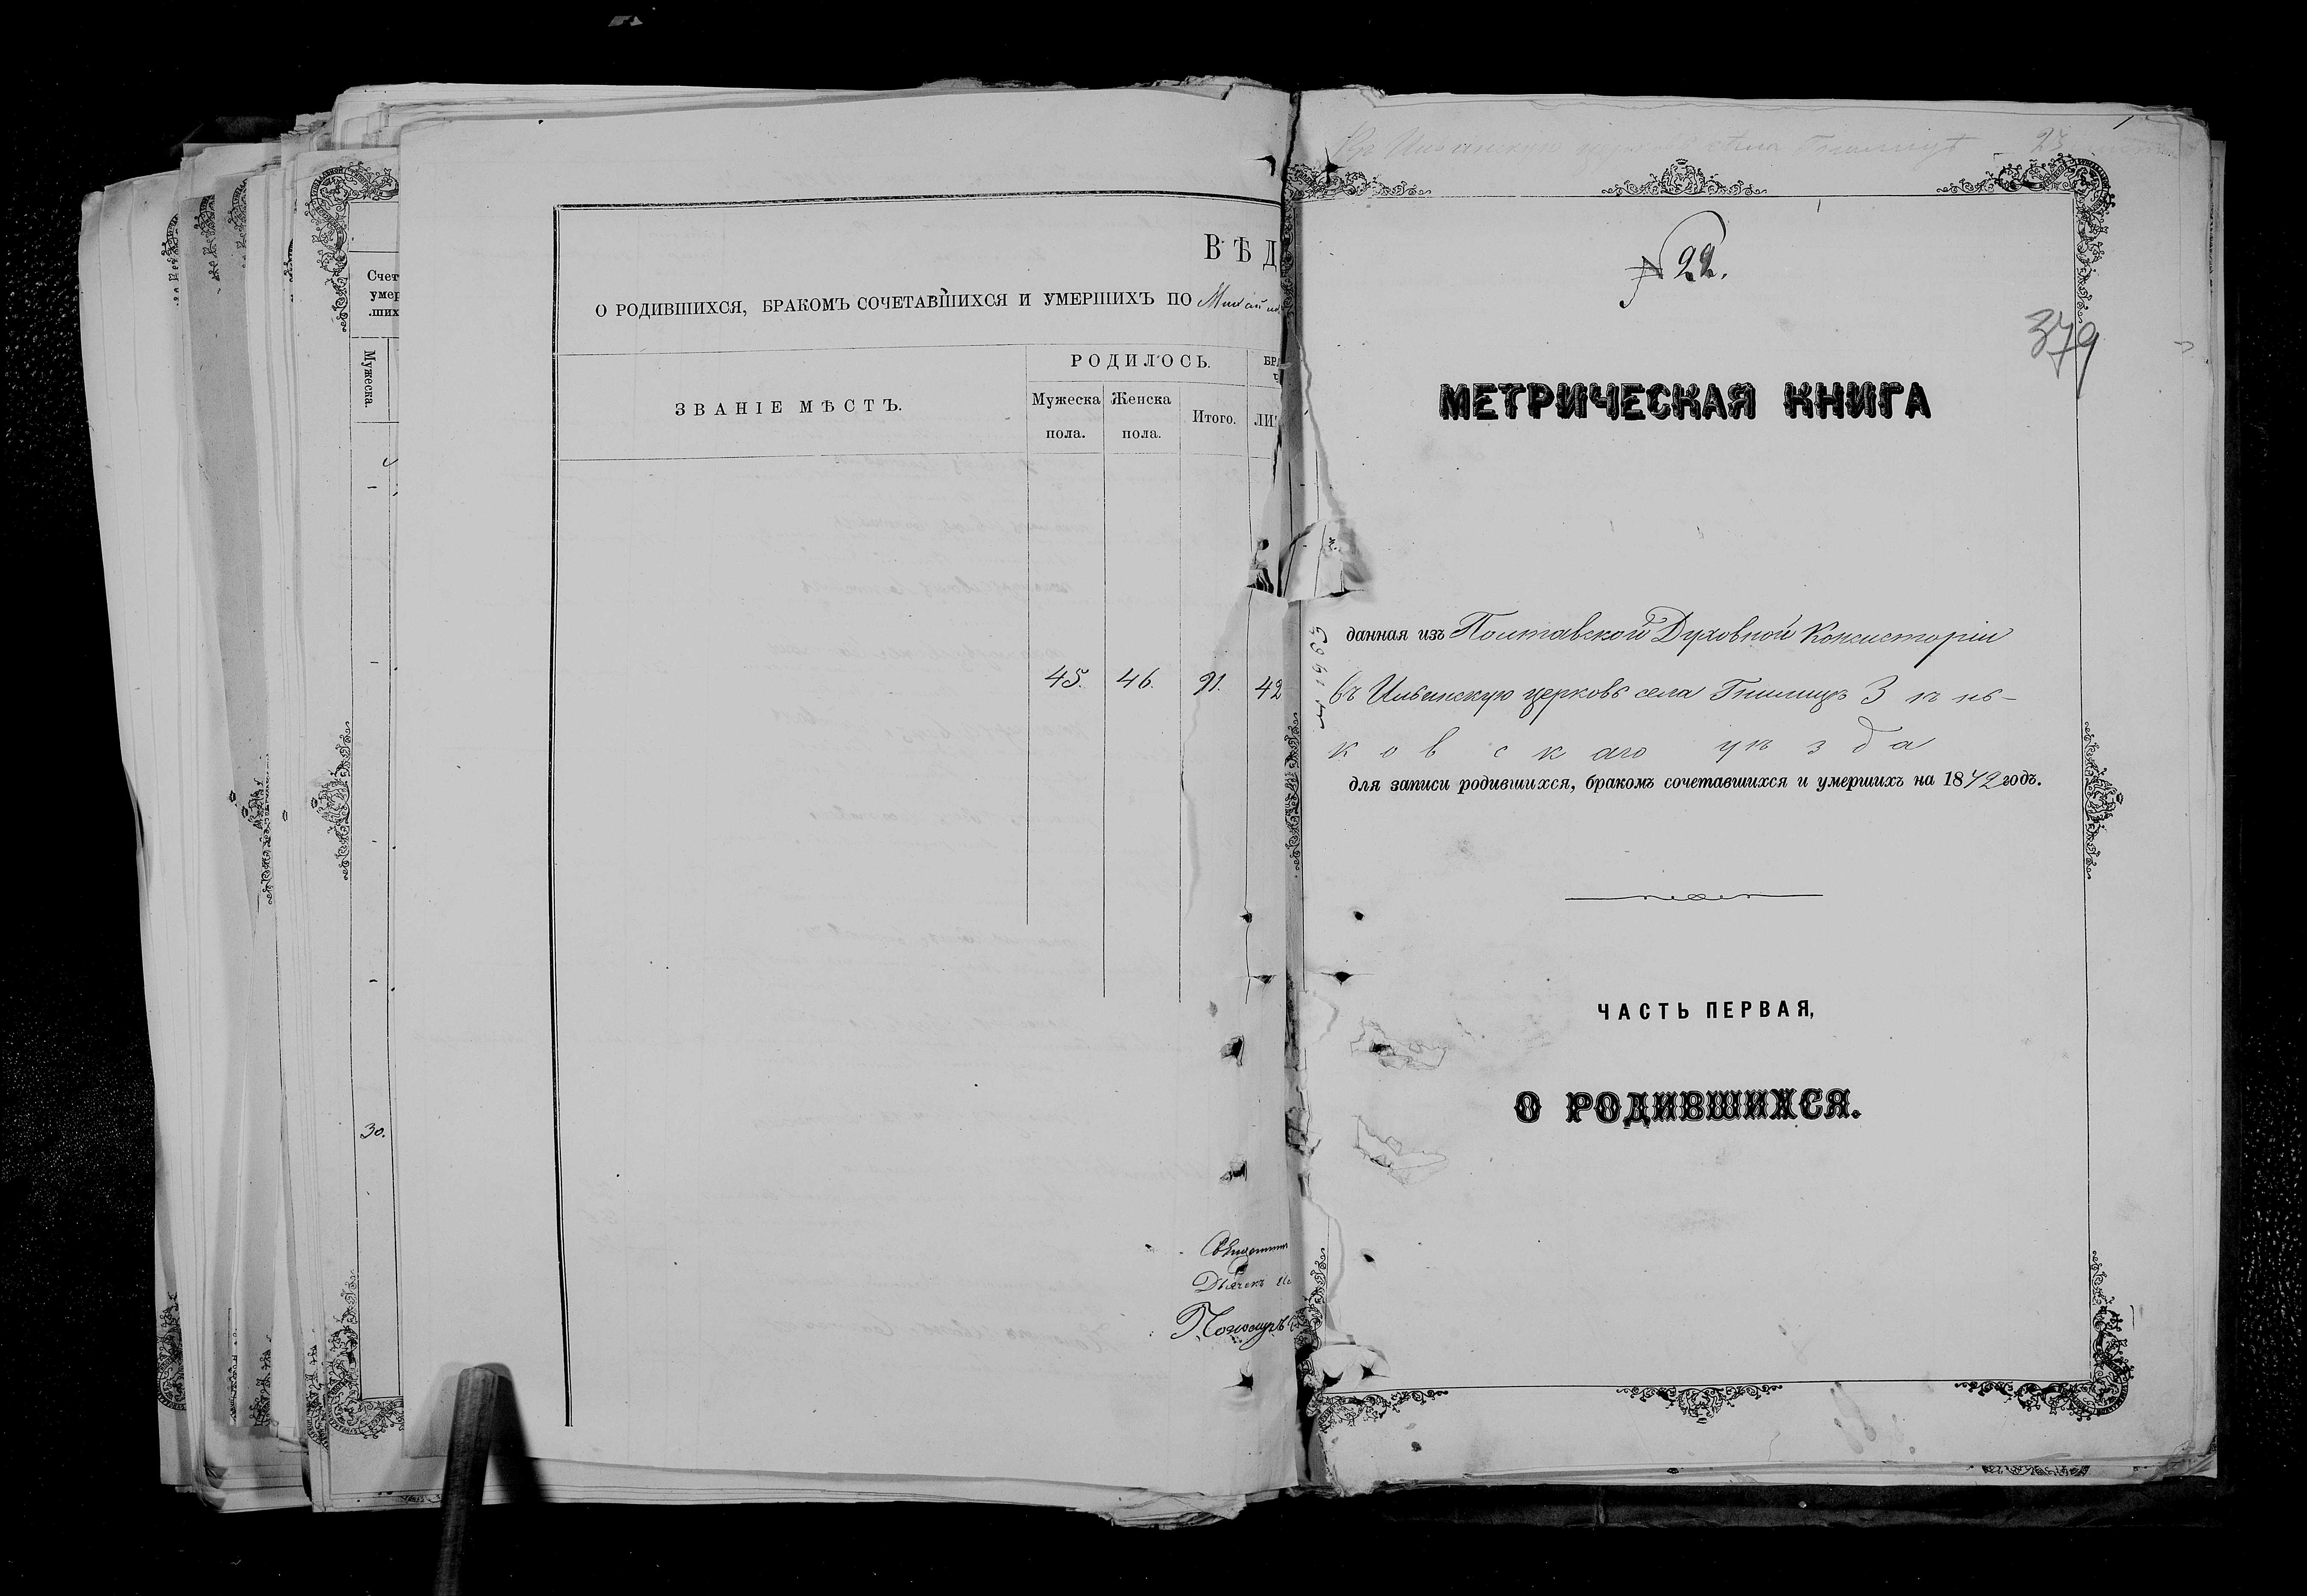 Счет
умер
.ших
Мужеска.
30.
ВѢД
О РОДИВШИХСЯ, БРАКОМЪ СОЧЕТАВШИХСЯ И УМЕРШИХЪ ПО
ЗВАНІЕ МѢСТЪ.
РОДИЛОСЬ.
Мужеска пола.
Женска пола.
Итого.
45. 46. 91. 42
Дьячекъ
Пономарь
№ 22.
379
МЕТРИЧЕСКАЯ КНИГА
данная изъ Полтавской Духовной Консисторіи
въ Ильинскую церковь села Гнилицъ Зѣнь-
ковскаго уѣзда
для записи родившихся, бракомъ сочетавшихся и умершихъ на 1872 годъ.
ЧАСТЬ ПЕРВАЯ,
О РОДИВШИХСЯ.